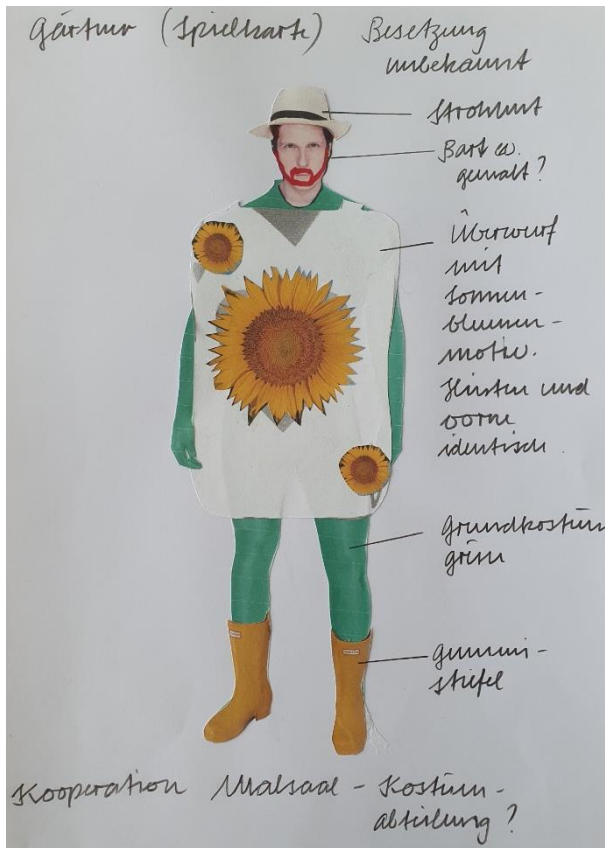 Gärtner (Spielkarte)
Besetzung
unbekannt
Strohhut
Bart ev.
gemalt?
Überwurf
mit
Sonnen-
blumen-
motiv.
Hinten und
vorne
identisch.
Grundkostüm
grün
Gummi-
stiefel
Kooperation Malsaal - Kostüm-
abteilung?